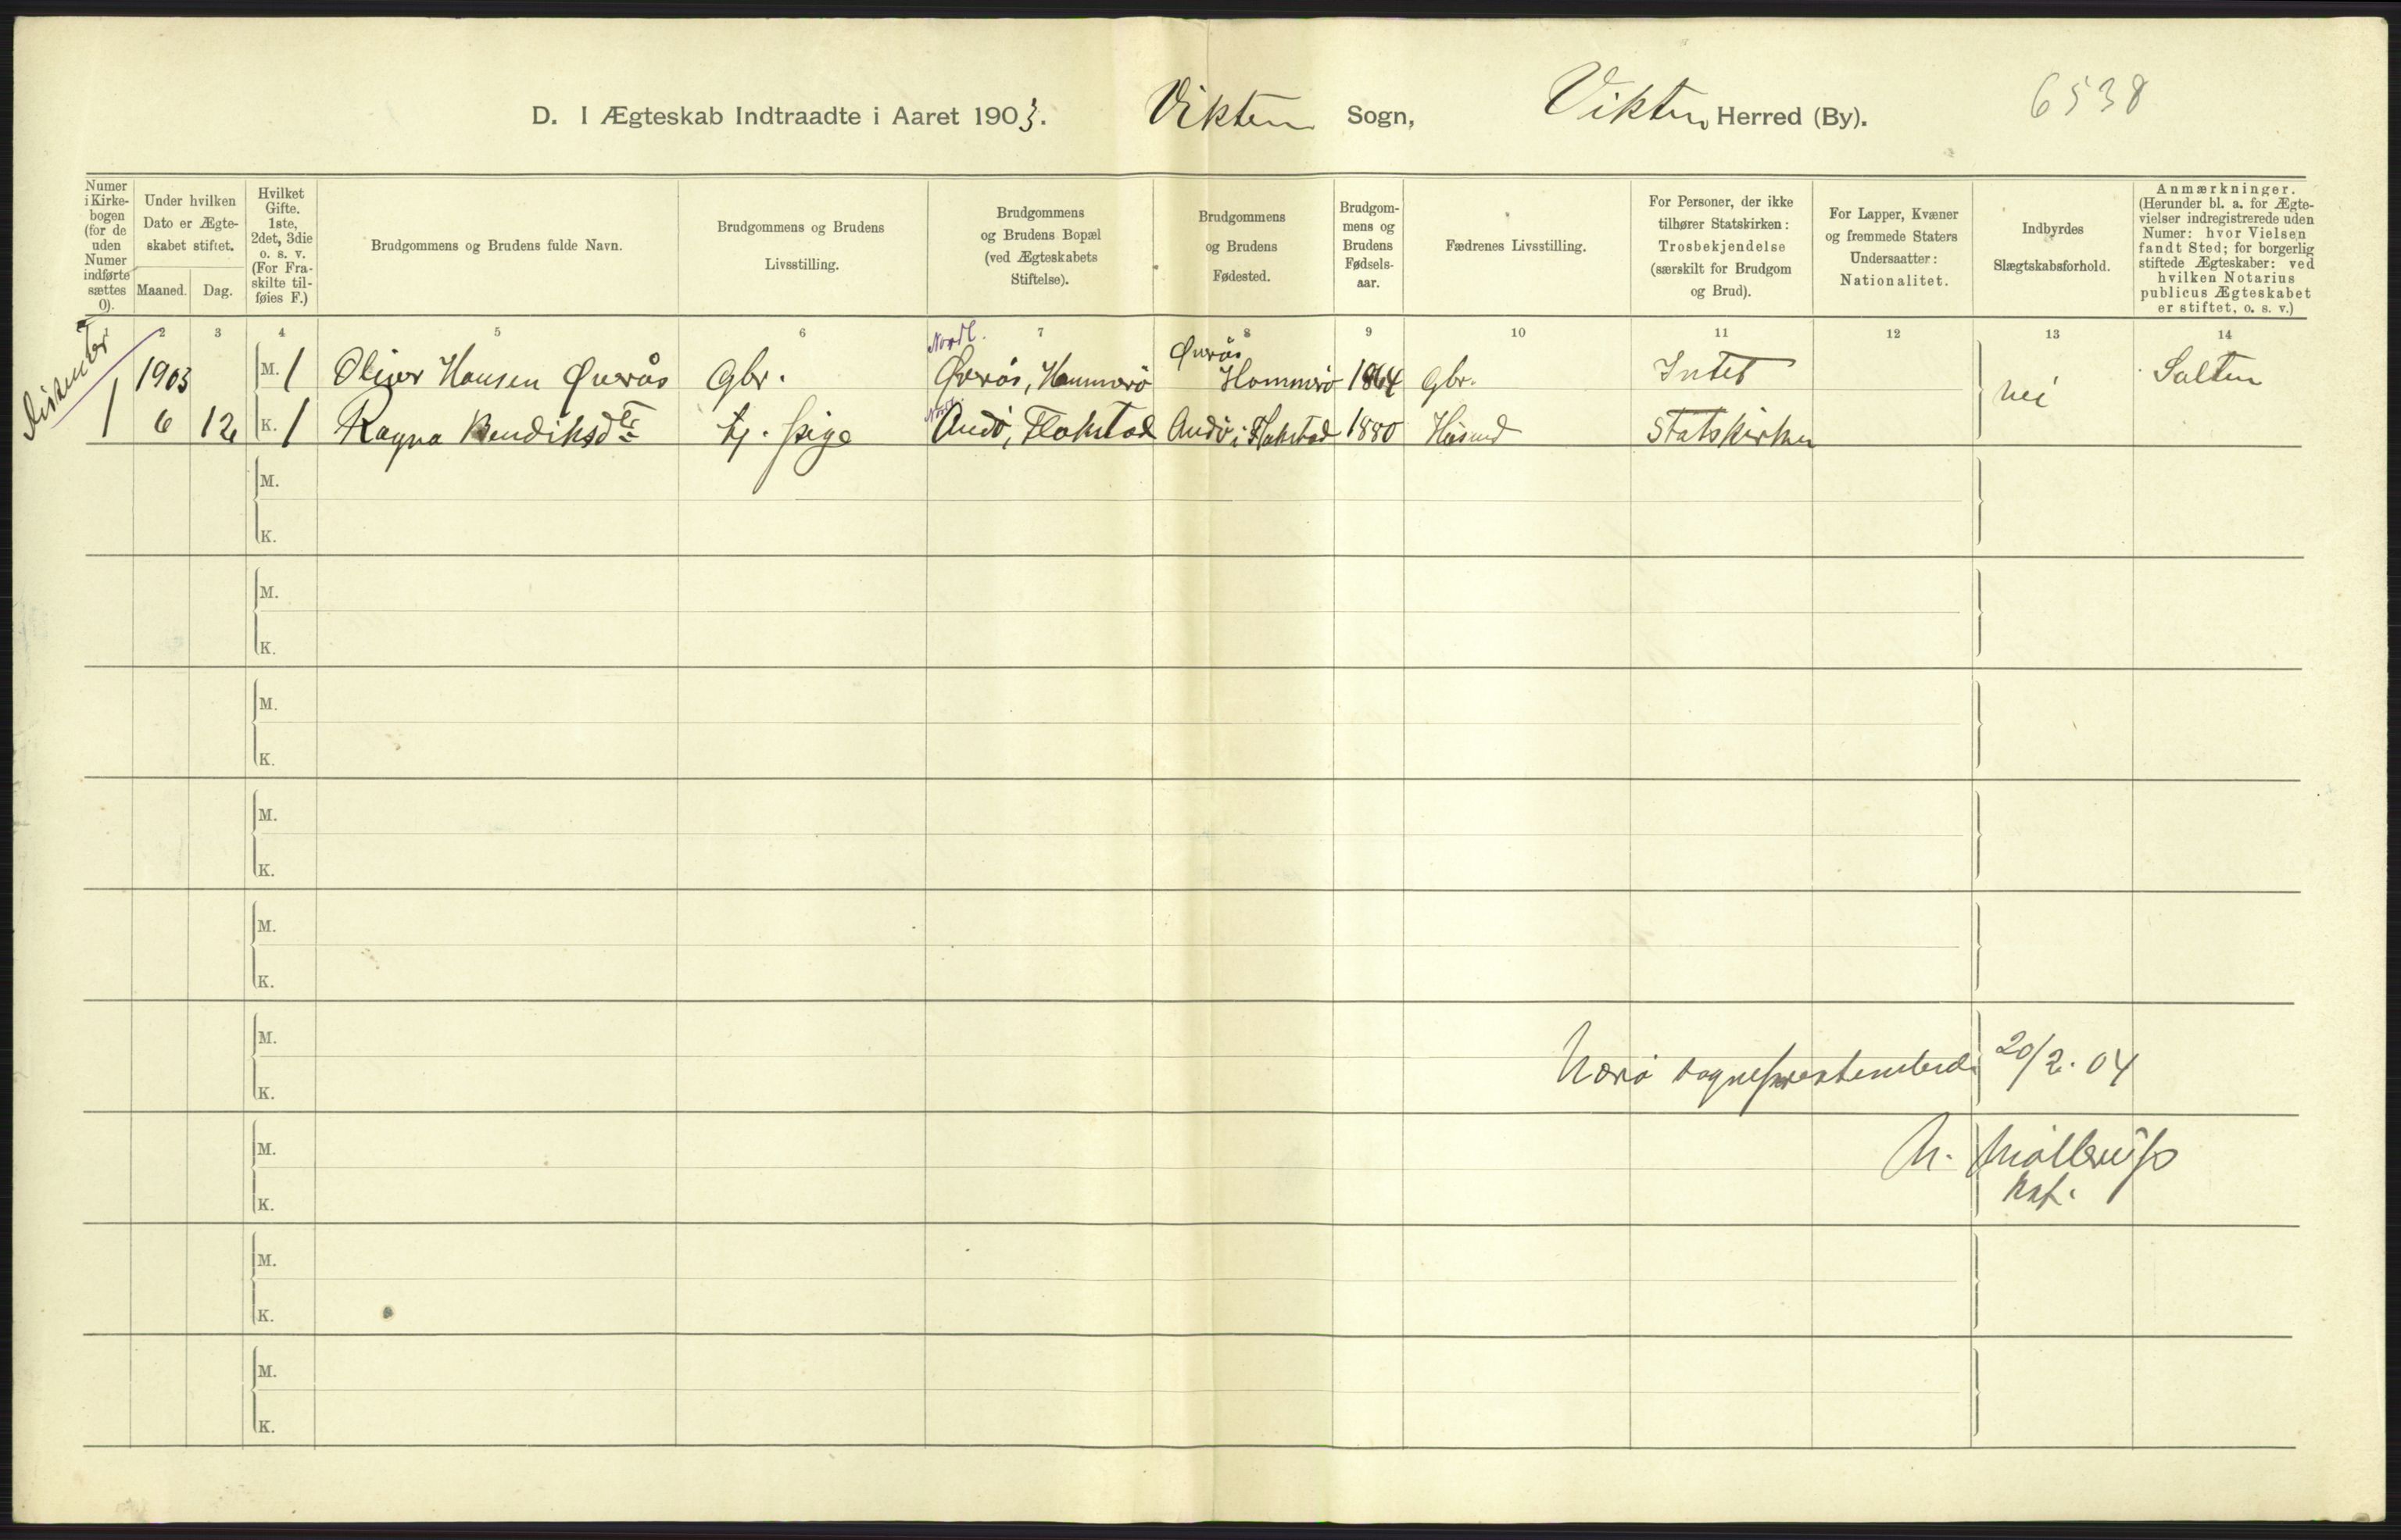 D. I Ægteskab Indtraadte i Aaret 1903. Vikten Sogn, Vikten Herred (By). 6538
Numer i Kirke- bogen (for de uden Numer indførte sættes 0).
Under hvilken Dato er Ægte- skabet stiftet.
Maaned. Dag.
Hvilket Gifte. 1ste, 2det, 3die o. s. v. (For Fra- skilte til- føies F.)
Brudgommens og Brudens fulde Navn.
Brudgommens og Brudens Livsstilling.
Brudgommens og Brudens Bopæl (ved Ægteskabets Stiftelse).
Brudgommens og Brudens Fødested.
Brudgom- mens og Brudens Fødsels- aar.
Fædrenes Livsstilling.
For Personer, der ikke tilhører Statskirken: Trosbekjendelse (særskilt for Brudgom og Brud).
For Lapper, Kvæner og fremmede Staters Undersaatter: Nationalitet.
Indbyrdes Slægtskabsforhold.
Anmærkninger. (Herunder bl. a. for Ægte- vielser indregistrerede uden Numer: hvor Vielsen fandt Sted; for borgerlig stiftede Ægteskaber: ved hvilken Notarius publicus Ægteskabet er stiftet, o. s. v.)
1 2 3 4 5 6 7 8 9 10 11 12 13 14
Dissenter
Nordl. Øverås
1903 M. 1 Oliver Hansen Øverås Gbr. Øverås, Hammerö Hammerö 1864 Gbr. Intet Salten
nei
1 6 12 K. 1 Ragna Bendiksdtr tj. pige Andö, Flakstad Andö i Flakstad 1880 Husmd Statskirken
M.
K.
M.
K.
M.
K.
M.
K.
M.
K.
M.
Nærö sogneprestembed 20/2. 04
K.
M.
K.
M.
K.
M.
K.